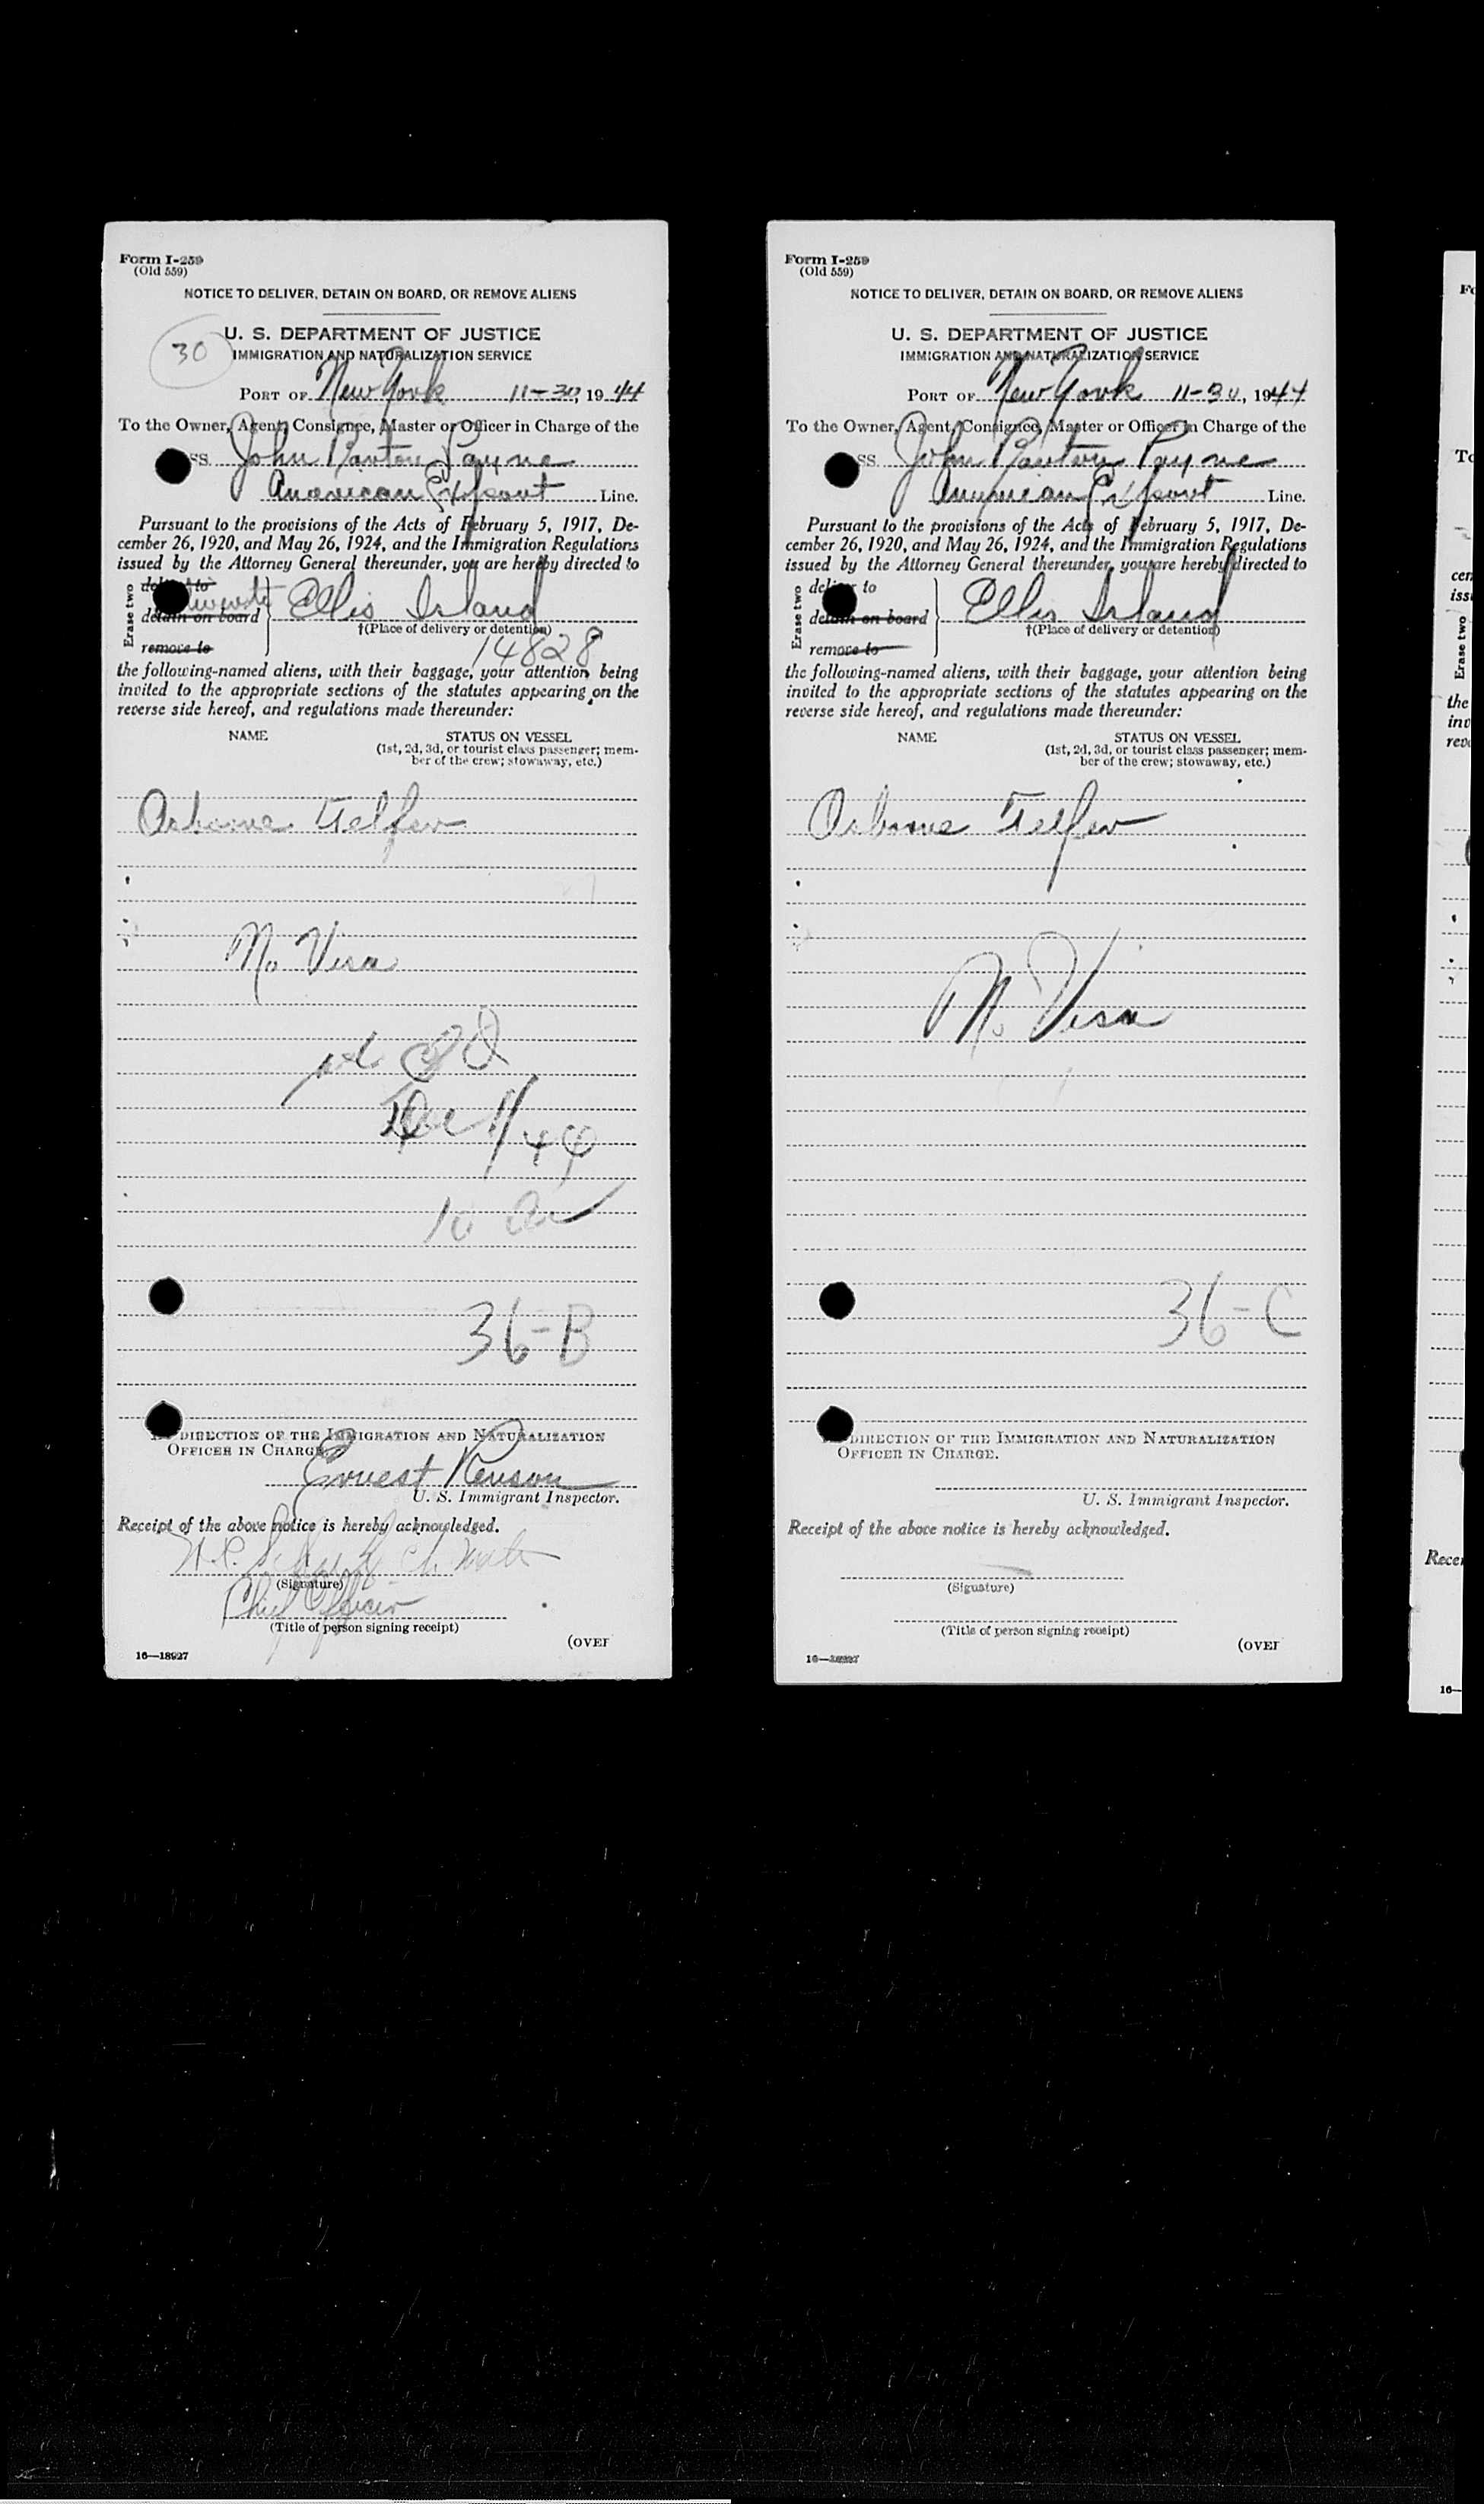 Form I-259
(Old 559)
NOTICE TO DELIVER, DETAIN ON BOARD, OR REMOVE ALIENS
30
U. S. DEPARTMENT OF JUSTICE
IMMIGRATION AND NATURALIZATION SERVICE
PORT OF New York 11-30, 1944
To the Owner, Agent, Consignee, Master or Officer in Charge of the
SS. John Barton Payne
American Export Line.
Pursuant to the provisions of the Acts of February 5, 1917, De-
cember 26, 1920, and May 26, 1924, and the Immigration Regulations
issued by the Attorney General thereunder, you are hereby directed to
Erase two
deliver to
detain on board
remove to
Ellis Island
†(Place of delivery or detention)
14828
the following-named aliens, with their baggage, your attention being
invited to the appropriate sections of the statutes appearing on the
reverse side hereof, and regulations made thereunder:
NAME STATUS ON VESSEL
(1st, 2d, 3d, or tourist class passenger; mem-
ber of the crew; stowaway, etc.)
Osborne Telfer
No Visa
Dec 1/44
36-B
DIRECTION OF THE IMMIGRATION AND NATURALIZATION
OFFICER IN CHARGE.
Ernest Renson
U. S. Immigrant Inspector.
Receipt of the above notice is hereby acknowledged.
(Signature)
Chief Officer
(Title of person signing receipt)
(OVER
16—18927
Form I-259
(Old 559)
NOTICE TO DELIVER, DETAIN ON BOARD, OR REMOVE ALIENS
U. S. DEPARTMENT OF JUSTICE
IMMIGRATION AND NATURALIZATION SERVICE
PORT OF New York 11-30, 1944
To the Owner, Agent, Consignee, Master or Officer in Charge of the
SS. John Barton Payne
American Export Line.
Pursuant to the provisions of the Acts of February 5, 1917, De-
cember 26, 1920, and May 26, 1924, and the Immigration Regulations
issued by the Attorney General thereunder, you are hereby directed to
Erase two
deliver to
detain on board
remove to
Ellis Island
†(Place of delivery or detention)
the following-named aliens, with their baggage, your attention being
invited to the appropriate sections of the statutes appearing on the
reverse side hereof, and regulations made thereunder:
NAME STATUS ON VESSEL
(1st, 2d, 3d, or tourist class passenger; mem-
ber of the crew; stowaway, etc.)
Osborne Telfer
No Visa
36-C
DIRECTION OF THE IMMIGRATION AND NATURALIZATION
OFFICER IN CHARGE.
U. S. Immigrant Inspector.
Receipt of the above notice is hereby acknowledged.
(Signature)
(Title of person signing receipt)
(OVER
Erase two
the
16—